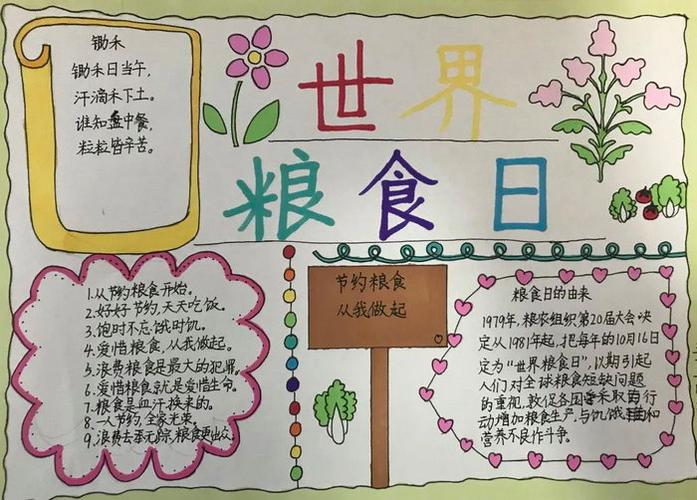 锄禾
锄禾日当午,
汗滴禾下土。
谁知盘中餐,
粒粒皆辛苦。
世界
粮食日
1.从节约粮食开始。
2.好好节约,天天吃饭。
3.饱时不忘饿时饥。
4.爱惜粮食,从我做起。
5.浪费粮食是最大的犯罪。
6.爱惜粮食就是爱惜生命。
7.粮食是血汗换来的。
8.一人节约,全家光荣。
9.浪费去无踪,粮食更出众
节约粮食
从我做起
粮食日的由来
1979年,粮农组织第20届大会决
定从1981年起,把每年的10月16日
定为“世界粮食日”,以期引起
人们对全球粮食短缺问题
的重视,敦促各国采取行
动增加粮食生产,与饥饿和
营养不良作斗争。